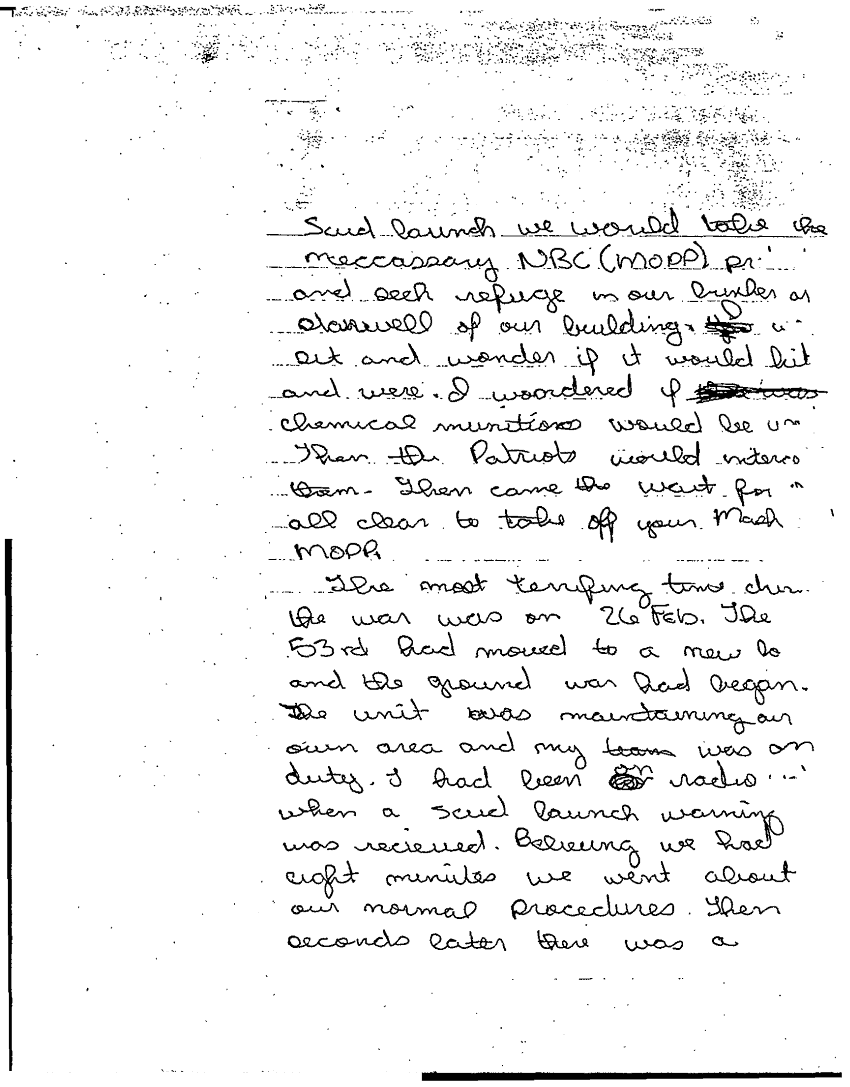 Scud launch we would take the
neccassary NBC (MOPP) pr
and seek refuge in our bunker or
stairwell of our building.
sit and wonder if it would hit
and were. I woordered if
chemical munitions would be
Then the Patriots would interc
them. Then came the wait for
all clear to take off your Mask
MOPP.
The most terrifing time dur
the war was on 26 Feb. The
53rd had moved to a new lo
and the ground war had began.
The unit was maintaining our
own area and my team was on
duty. I had been on radio
when a scud launch warning
was recieved. Believing we had
eight minutes we went about
our normal procedures. Then
seconds later there was a